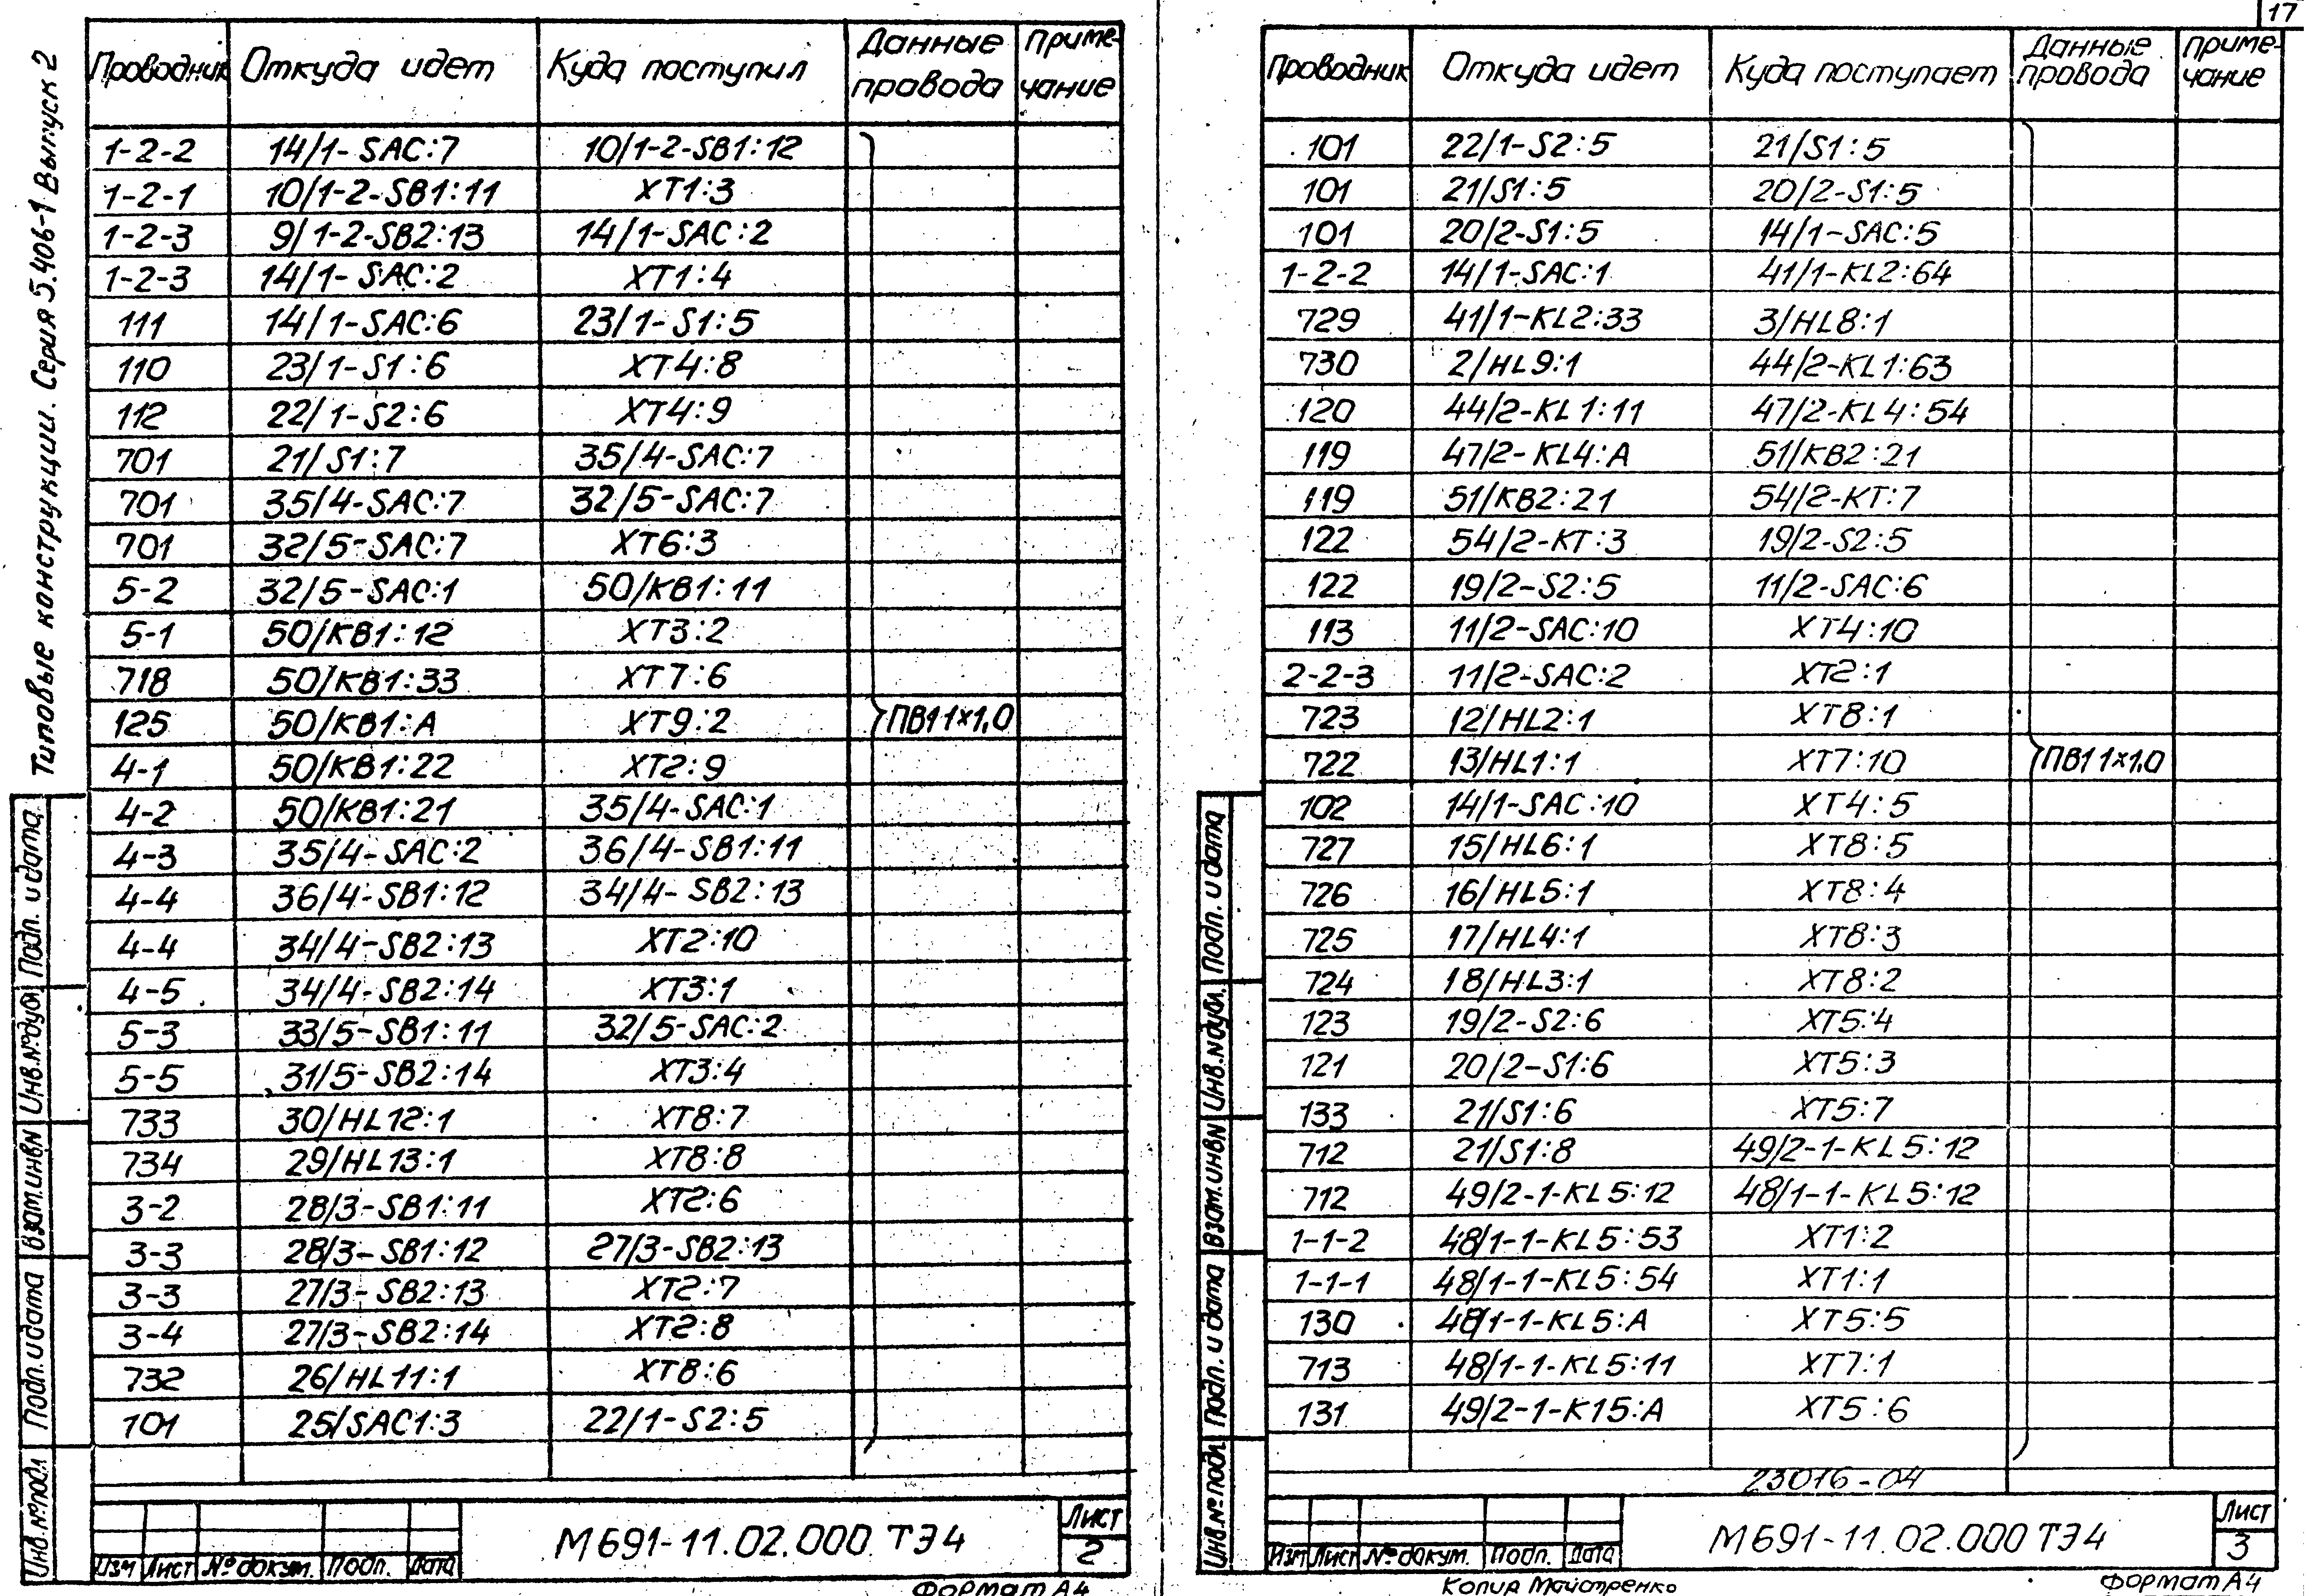 17
Типовые конструкции. Серия 5.406-1 Выпуск 2
Проводник Откуда идет Куда поступил Данные провода Приме-чание
1-2-2 14/1-SAC:7 10/1-2-SB1:12
1-2-1 10/1-2-SB1:11 XT1:3
1-2-3 9/1-2-SB2:13 14/1-SAC:2
1-2-3 14/1-SAC:2 XT1:4
111 14/1-SAC:6 23/1-S1:5
110 23/1-S1:6 XT4:8
112 22/1-S2:6 XT4:9
701 21/S1:7 35/4-SAC:7
701 35/4-SAC:7 32/5-SAC:7
701 32/5-SAC:7 XT6:3
5-2 32/5-SAC:1 50/KB1:11
5-1 50/KB1:12 XT3:2
718 50/KB1:33 XT7:6
125 50/KB1:A XT9:2 ПВ1 1×1,0
4-1 50/KB1:22 XT2:9
4-2 50/KB1:21 35/4-SAC:1
4-3 35/4-SAC:2 36/4-SB1:11
4-4 36/4-SB1:12 34/4-SB2:13
4-4 34/4-SB2:13 XT2:10
4-5 34/4-SB2:14 XT3:1
5-3 33/5-SB1:11 32/5-SAC:2
5-5 31/5-SB2:14 XT3:4
733 30/HL12:1 XT8:7
734 29/HL13:1 XT8:8
3-2 28/3-SB1:11 XT2:6
3-3 28/3-SB1:12 27/3-SB2:13
3-3 27/3-SB2:13 XT2:7
3-4 27/3-SB2:14 XT2:8
732 26/HL11:1 XT8:6
101 25/SAC1:3 22/1-S2:5
Инв.№подл Подп.и дата Взам.инв№ Инв.№дубл Подп. и дата
Изм Лист №докум. Подп. Дата
М691-11.02.000 ТЭ4
Лист
2
Формат А4
Проводник Откуда идет Куда поступает Данные провода Приме-чание
101 22/1-S2:5 21/S1:5
101 21/S1:5 20/2-S1:5
101 20/2-S1:5 14/1-SAC:5
1-2-2 14/1-SAC:1 41/1-KL2:64
729 41/1-KL2:33 3/HL8:1
730 2/HL9:1 44/2-KL1:63
120 44/2-KL1:11 47/2-KL4:54
119 47/2-KL4:A 51/KB2:21
119 51/KB2:21 54/2-KT:7
122 54/2-KT:3 19/2-S2:5
122 19/2-S2:5 11/2-SAC:6
113 11/2-SAC:10 XT4:10
2-2-3 11/2-SAC:2 XT2:1
723 12/HL2:1 XT8:1
722 13/HL1:1 XT7:10 ПВ1 1×1,0
102 14/1-SAC:10 XT4:5
727 15/HL6:1 XT8:5
726 16/HL5:1 XT8:4
725 17/HL4:1 XT8:3
724 18/HL3:1 XT8:2
123 19/2-S2:6 XT5:4
121 20/2-S1:6 XT5:3
133 21/S1:6 XT5:7
712 21/S1:8 49/2-1-KL5:12
712 49/2-1-KL5:12 48/1-1-KL5:12
1-1-2 48/1-1-KL5:53 XT1:2
1-1-1 48/1-1-KL5:54 XT1:1
130 48/1-1-KL5:A XT5:5
713 48/1-1-KL5:11 XT7:1
131 49/2-1-K15:A XT5:6
23016-04
Инв.№подл. Подп. и дата Взам.инв№ Инв.№дубл. Подп. и дата
Изм Лист №докум. Подп. Дата
М691-11.02.000 ТЭ4
Лист
3
Копир Майстренко
Формат А4